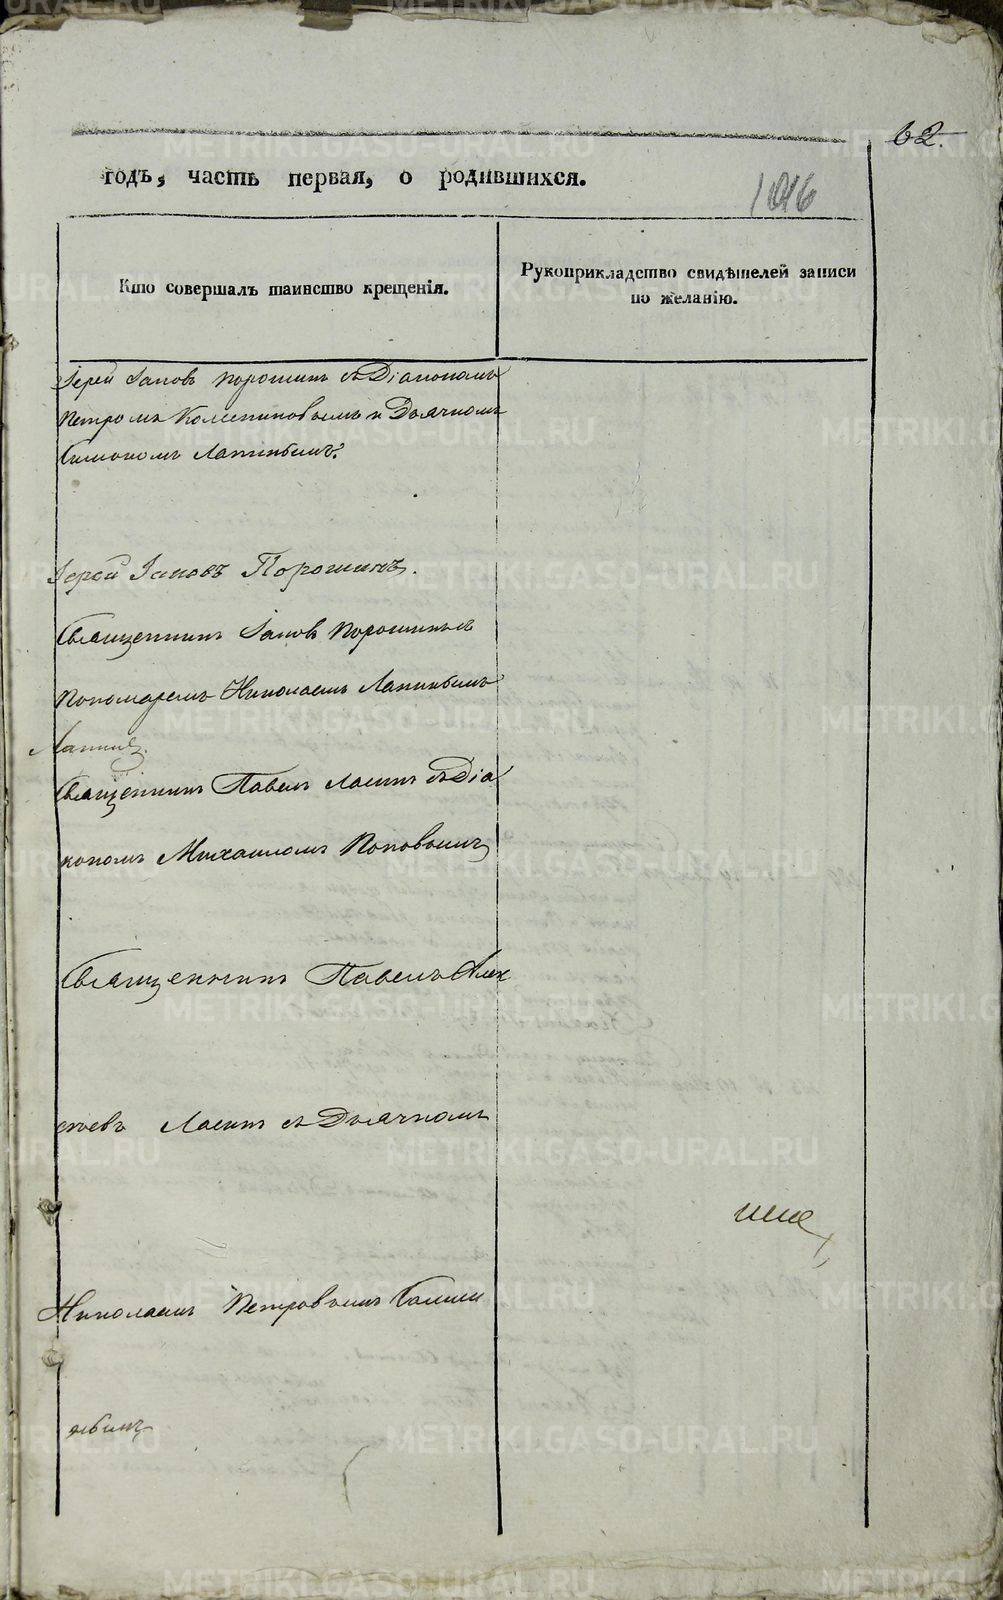 62.
годъ, часть первая, о родившихся.
1016
Кто совершалъ таинство крещенія.
Рукоприкладство свидѣтелей записи
по желанію.
Іерей Іаковъ Порошинъ съ Діакономъ
Петромъ и Дьячкомъ
Симономъ Лапинымъ.
Іерей Іаковъ Порошинъ.
Священникъ Іаковъ Порошинъ съ
Пономаремъ Николаемъ Лапинымъ
Лапинъ.
Священникъ Павелъ Ласинъ съ Діа
кономъ Михаиломъ Поповымъ
Священникъ Павелъ Алек
сѣевъ Ласинъ съ Дьячкомъ
Николаемъ Петровымъ
METRIKI.GASO-URAL.RU